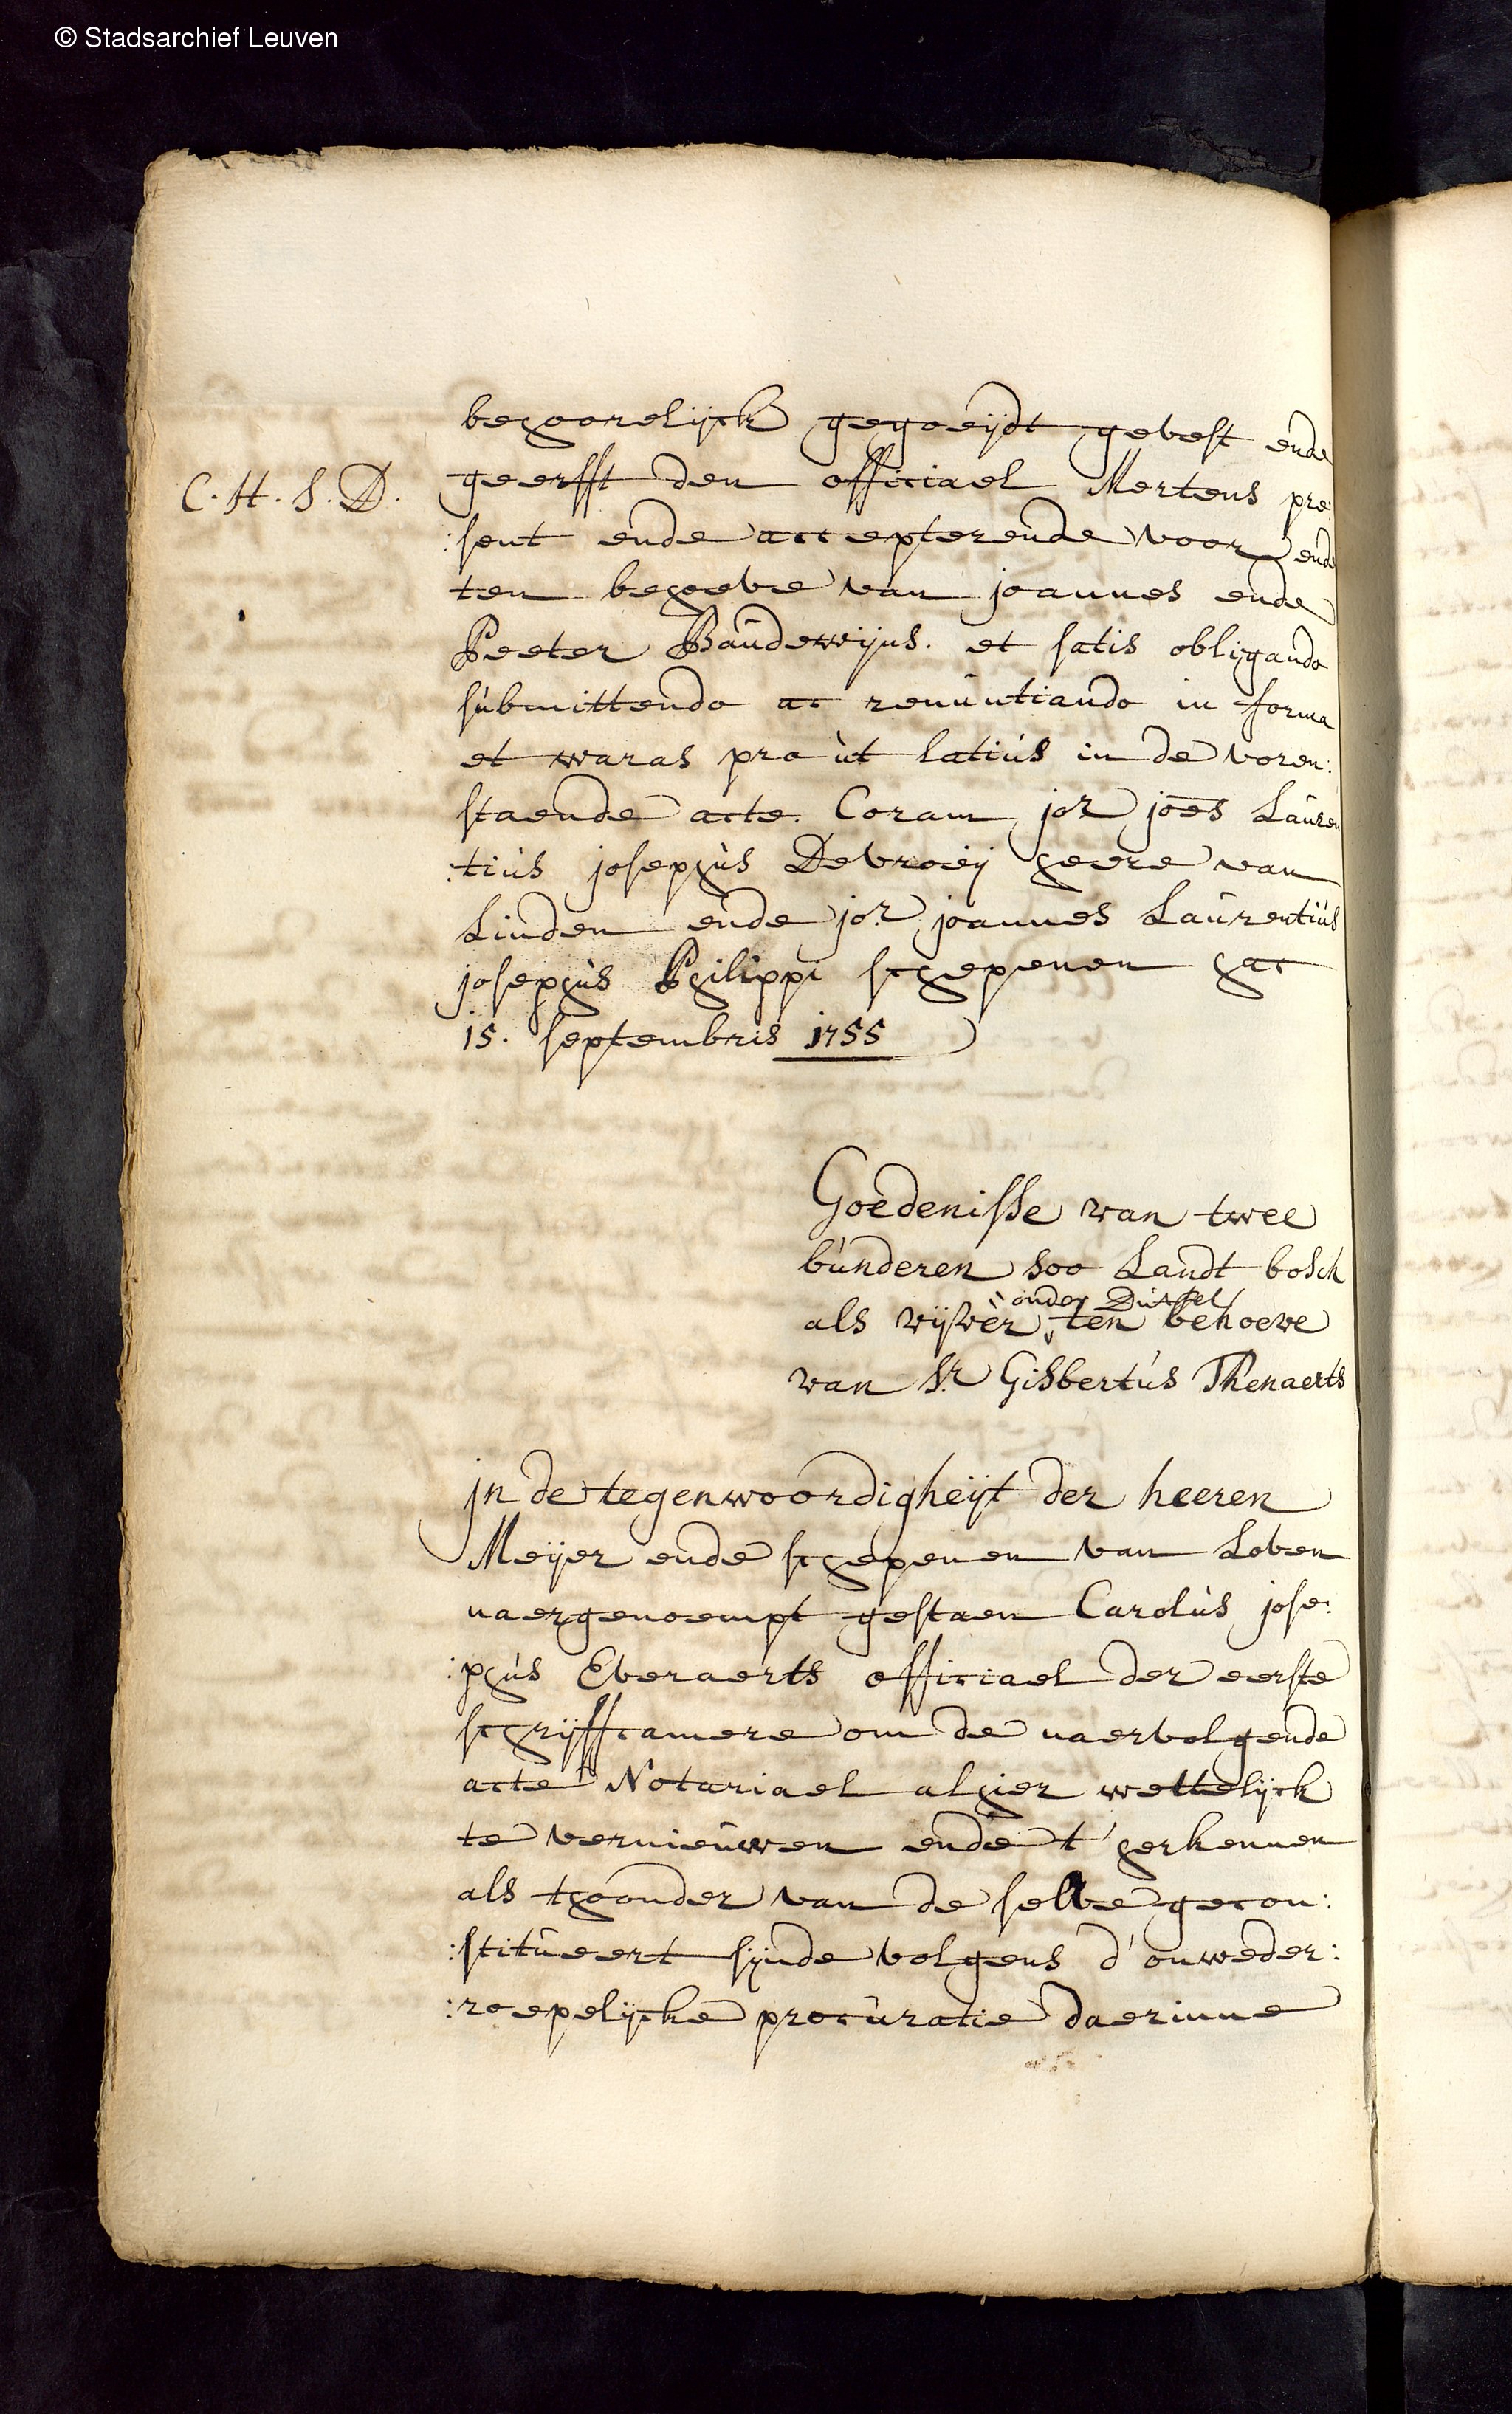 © Stadsarchief Leuven
behoorelijck gegoeijdt gevest ende
C. H. S. D.
geerfft den officiael Mertens pre:
:sent ende accepterende voor ende
ten behoeve van joannes ende
Peeter Baudewijns. et satis obligando
submittendo ac renuntiando in forma
et waras pro ut latius in de voren:
staende acte. Coram jor joes Lauren
:tius josephus Devroeij heere van
Linden ende jor joannes Laurentius
josephus Philippi schepenen hac
15. septembris 1755
Goedenisse van twee
bunderen soo Landt bosch
onder Duffel
als vijver ten behoeve
van Sr Gisbertus Thenaerts
jn de tegenwoordigheijt der heeren
Meijer ende schepenen van Loven
naergenoempt gestaen Carolus jose:
:phus Everaerts officiael der eerste
schrijffcamere om de naervolgende
acte Notariael alhier wettelijck
te vernieuwen ende t'herkennen
als thoonder van de selve gecon:
:stitueert sijnde volgens d'onweder:
:roepelijcke procuratie daerinne